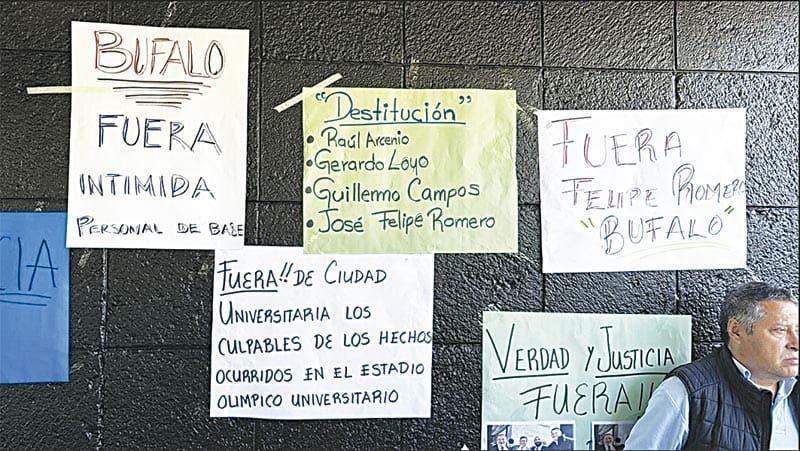 BUFALO
FUERA
INTIMIDA
PERSONAL DE BASE
"Destitución"
• Raúl Arcenio
• Gerardo Loyo
• Guillermo Campos
• José Felipe Romero
FUERA
FELIPE ROMERO
"BUFALO"
CIA
FUERA!! DE CIUDAD
UNIVERSITARIA LOS
CULPABLES DE LOS HECHOS
OCURRIDOS EN EL ESTADIO
OLIMPICO UNIVERSITARIO
VERDAD Y JUSTICIA
FUERA!!